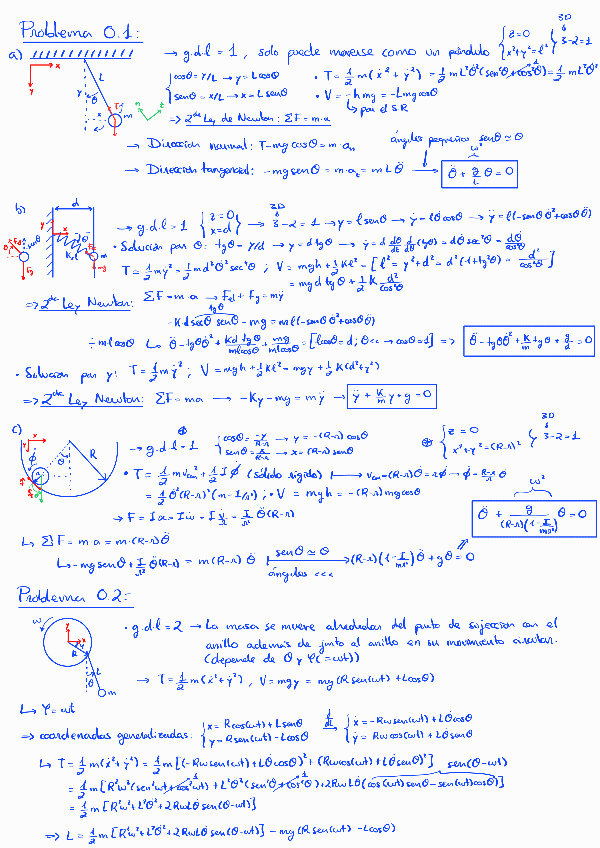 Problema 0.1:
a) → g.d.l = 1, solo puede moverse como un péndulo { z=0 x²+y²=L² } 3D 3-2=1
{ cosθ = y/L → y = L cosθ • T = 1/2 m(ẋ² + ẏ²) = 1/2 mL²θ̇²(sen²θ + cos²θ) = 1/2 mL²θ̇²
senθ = x/L → x = L senθ • V = -hmg = -Lmg cosθ
↳ por el SR
⇒ 2da Ley de Newton: ΣF = m·a
→ Dirección normal: T - mg cosθ = m·aₙ ángulos pequeños senθ ≈ θ
→ Dirección tangencial: -mg senθ = m·aₜ = mLθ̈ → θ̈ + g/L θ = 0 ω²
b) → g.d.l = 1 { z=0 x=d } → 3D 3-2=1 → y = l senθ → ẏ = lθ̇ cosθ → ÿ = l(-senθ θ̇² + cosθ θ̈)
• Solución por θ: tgθ = y/d → y = d tgθ → ẏ = d dθ/dt d/dθ (tgθ) = dθ̇ sec²θ = dθ̇/cos²θ
T = 1/2 mẏ² = 1/2 md²θ̇² sec⁴θ ; V = mgh + 1/2 Kl² = [l² = y² + d² = d²(1+tg²θ) = d²/cos²θ]
= mgd tgθ + 1/2 K d²/cos²θ
⇒ 2da Ley Newton: ΣF = ma → Fel + Fg = mÿ
-Kd secθ senθ - mg = ml(-senθ θ̇² + cosθ θ̈) tgθ
÷ ml cosθ ↳ θ̈ - tgθ θ̇² + Kd tgθ/ml cosθ + mg/ml cosθ = [l cosθ = d; θ<< → cosθ = d] ⇒ θ̈ - tgθ θ̇² + K/m tgθ + g/d = 0
• Solución por y: T = 1/2 mẏ² ; V = mgh + 1/2 Kl² = mgy + 1/2 K(d² + y²)
⇒ 2da Ley Newton: ΣF = ma → -Ky - mg = mÿ → ÿ + K/m y + g = 0
c) → g.d.l = 1 ⊕ { cosθ = -y/R-r → y = -(R-r) cosθ senθ = x/R-r → x = (R-r) senθ ⊕ { z=0 x²+y² = (R-r)² } 3D 3-2=1
• T = 1/2 m v²cm + 1/2 I φ̇ (sólido rígido) ↦ vcm = (R-r)θ̇ = rφ̇ → φ̇ = R-r/r θ̇
= 1/2 θ̇²(R-r)²(m - I/r²) ; • V = mgh = -(R-r) mg cosθ
→ F = Iα = Iω̇ = I v̇/r = I/r² θ̈(R-r)
ω² θ̈ + g/(R-r)(1 - I/mr²) θ = 0
↳ ΣF = ma = m·(R-r)θ̈
↳ -mg senθ + I/r² θ̈(R-r) = m(R-r) θ̈ senθ ≈ θ ángulos <<< → (R-r)(1 - I/mr²)θ̈ + gθ = 0
Problema 0.2:
• g.d.l = 2 → La masa se mueve alrededor del punto de sujeción con el
anillo además de junto al anillo en su movimiento circular.
(depende de θ y φ(=ωt))
→ T = 1/2 m(ẋ² + ẏ²), V = mgy = mg(R sen(ωt) + L cosθ)
↳ φ = ωt
⇒ coordenadas generalizadas: { x = R cos(ωt) + L senθ y = R sen(ωt) - L cosθ d/dt → { ẋ = -Rω sen(ωt) + Lθ̇ cosθ ẏ = Rω cos(ωt) + Lθ̇ senθ
↳ T = 1/2 m(ẋ² + ẏ²) = 1/2 m[(-Rω sen(ωt) + Lθ̇ cosθ)² + (Rω cos(ωt) + Lθ̇ senθ)²] sen(θ-ωt)
= 1/2 m[R²ω²(sen²ωt + cos²ωt) + L²θ̇²(sen²θ + cos²θ) + 2RωLθ̇(cos(ωt) senθ - sen(ωt) cosθ)]
= 1/2 m[R²ω² + L²θ̇² + 2RωLθ̇ sen(θ-ωt)]
⇒ L = 1/2 m[R²ω² + L²θ̇² + 2RωLθ̇ sen(θ-ωt)] - mg(R sen(ωt) - L cosθ)